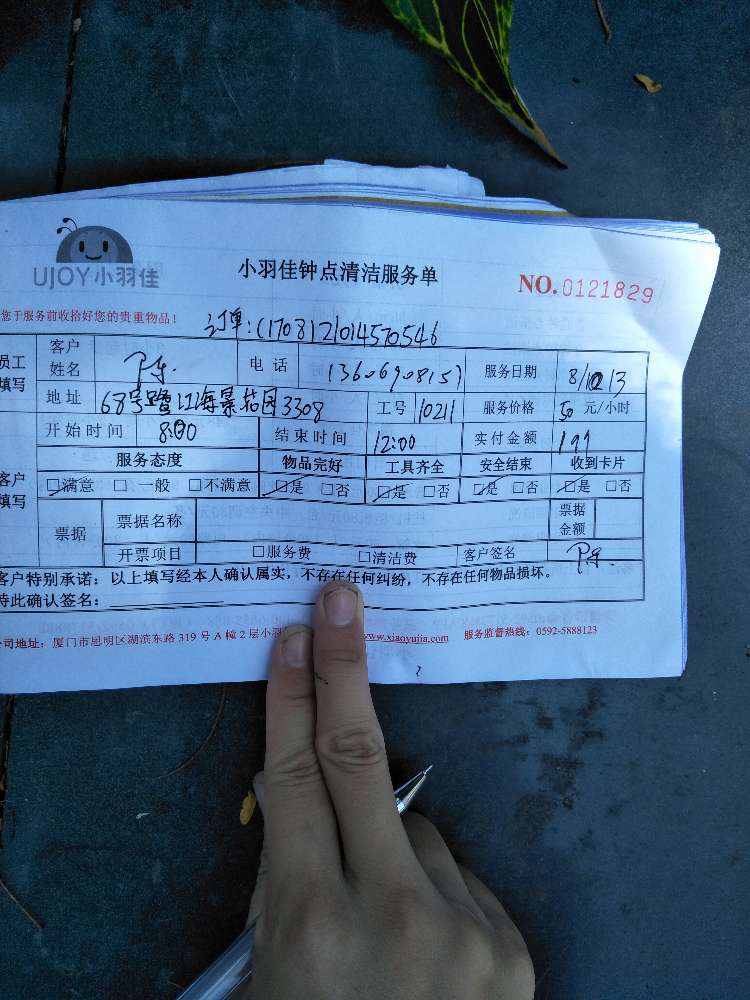 UJOY小羽佳
小羽佳钟点清洁服务单
NO.0121829
您于服务前收拾好您的贵重物品！
订单:C1708121014570546
员工填写 客户姓名 电话 服务日期 8/ 13
地址 68号鹭江海景花园3308 工号 10211 服务价格 50 元/小时
开始时间 8:00 结束时间 12:00 实付金额 199
服务态度 物品完好 工具齐全 安全结束 收到卡片
客户填写 □满意 □一般 □不满意 □是 □否 □是 □否 □是 □否 □是 □否
票据 票据名称 票据金额
开票项目 □服务费 □清洁费 客户签名
客户特别承诺：以上填写经本人确认属实，不存在任何纠纷，不存在任何物品损坏。
特此确认签名：
公司地址：厦门市思明区湖滨东路 319 号 A 幢 2 层小羽 www.xiaoyujia.com 服务监督热线：0592-5888123